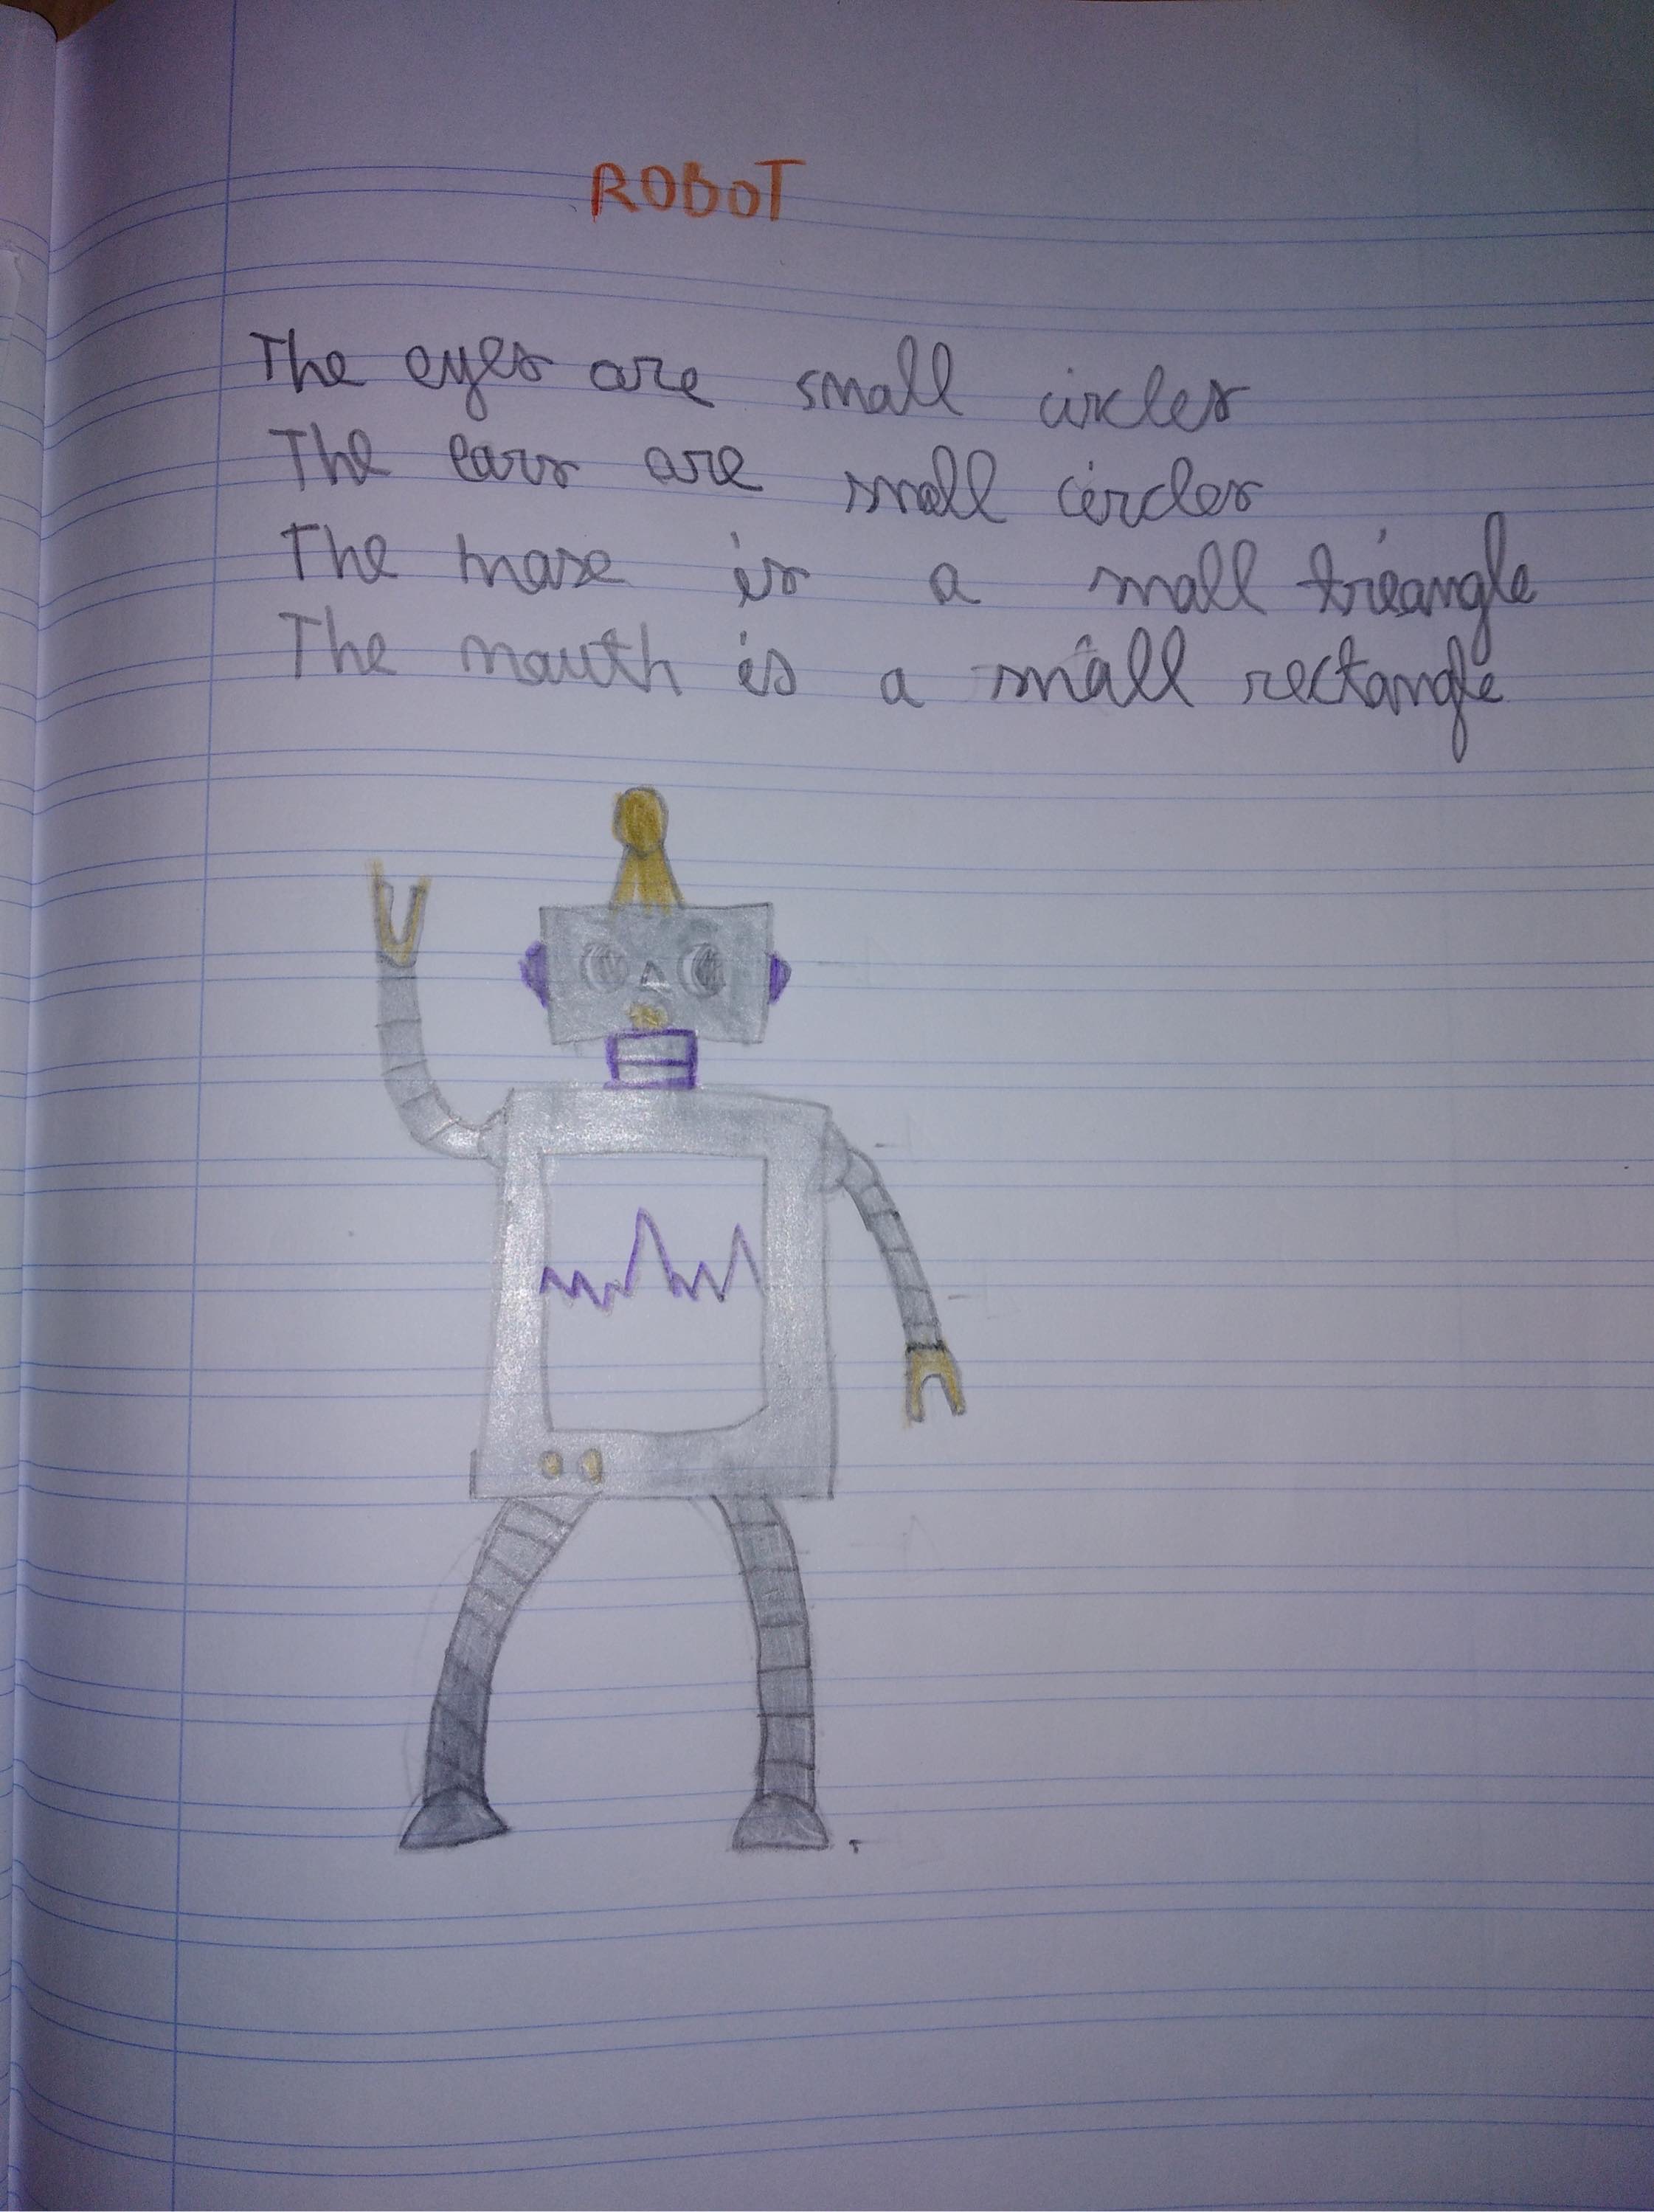 ROBOT
The eyes are small circles
The ears are small circles
The nose is a small triangle
The mouth is a small rectangle